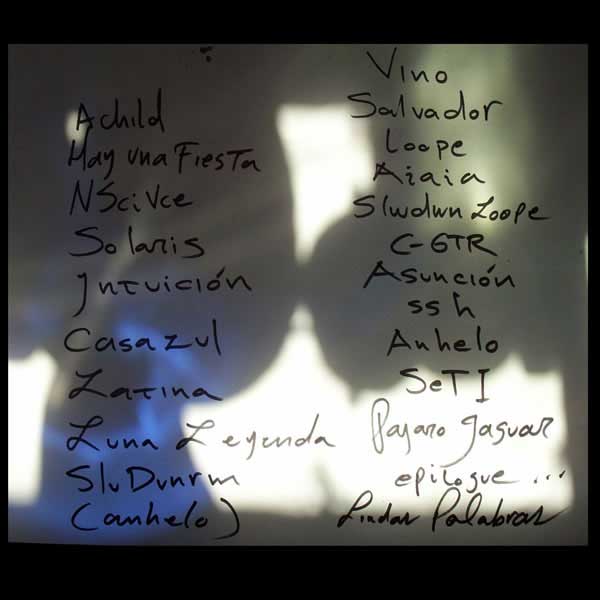 Achild
Hay una Fiesta
NSciVce
Solaris
Intuición
Casazul
Latina
Luna Leyenda
SluDvnrm
(anhelo)
Vino
Salvador
Loope
Aiaia
Slwdwn Loope
C-GTR
Asunción
ssh
Anhelo
SeTI
Pajaro Jaguar
epilogue ...
Lindas Palabras